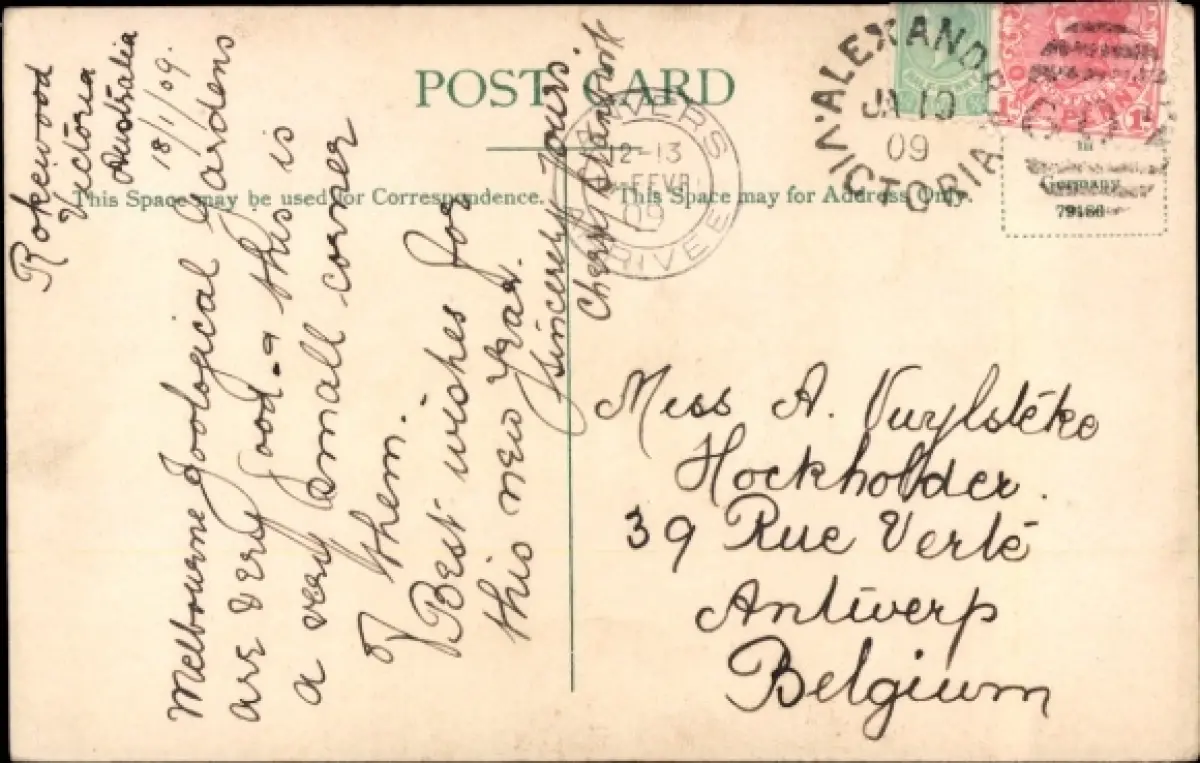 POST CARD
This Space may be used for Correspondence.
This Space may for Address Only.
Rokewood
Victoria
Australia
18/1/09.
Melbourne Zoological Gardens
are very good - & this is
a very small corner
of them.
Best wishes for
this new year.
Sincerely Yours.
Miss A. Vuylstéke
Hockholder.
39 Rue Verté
Antwerp
Belgium
ALEXANDR
JA 19
09
VICTORIA
ANVERS
12-13
FEVR
09
ARRIVEE
in
Germany
79186